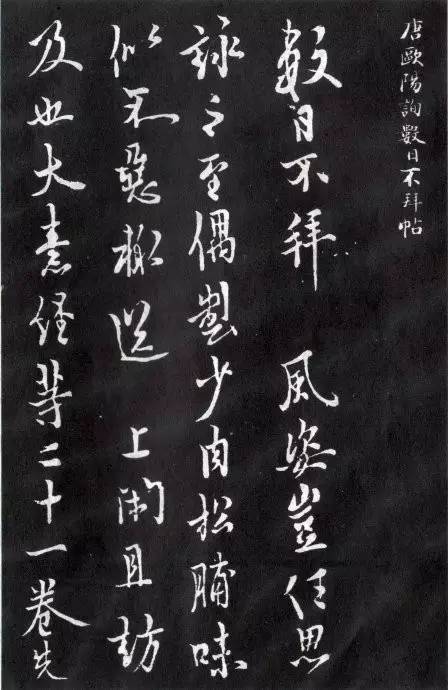 唐歐陽詢數日不拜帖
數日不拜 風姿豈任思
詠之至偶製少肉松脯味
似不惡送 上且訪
及也大素経等二十一卷先